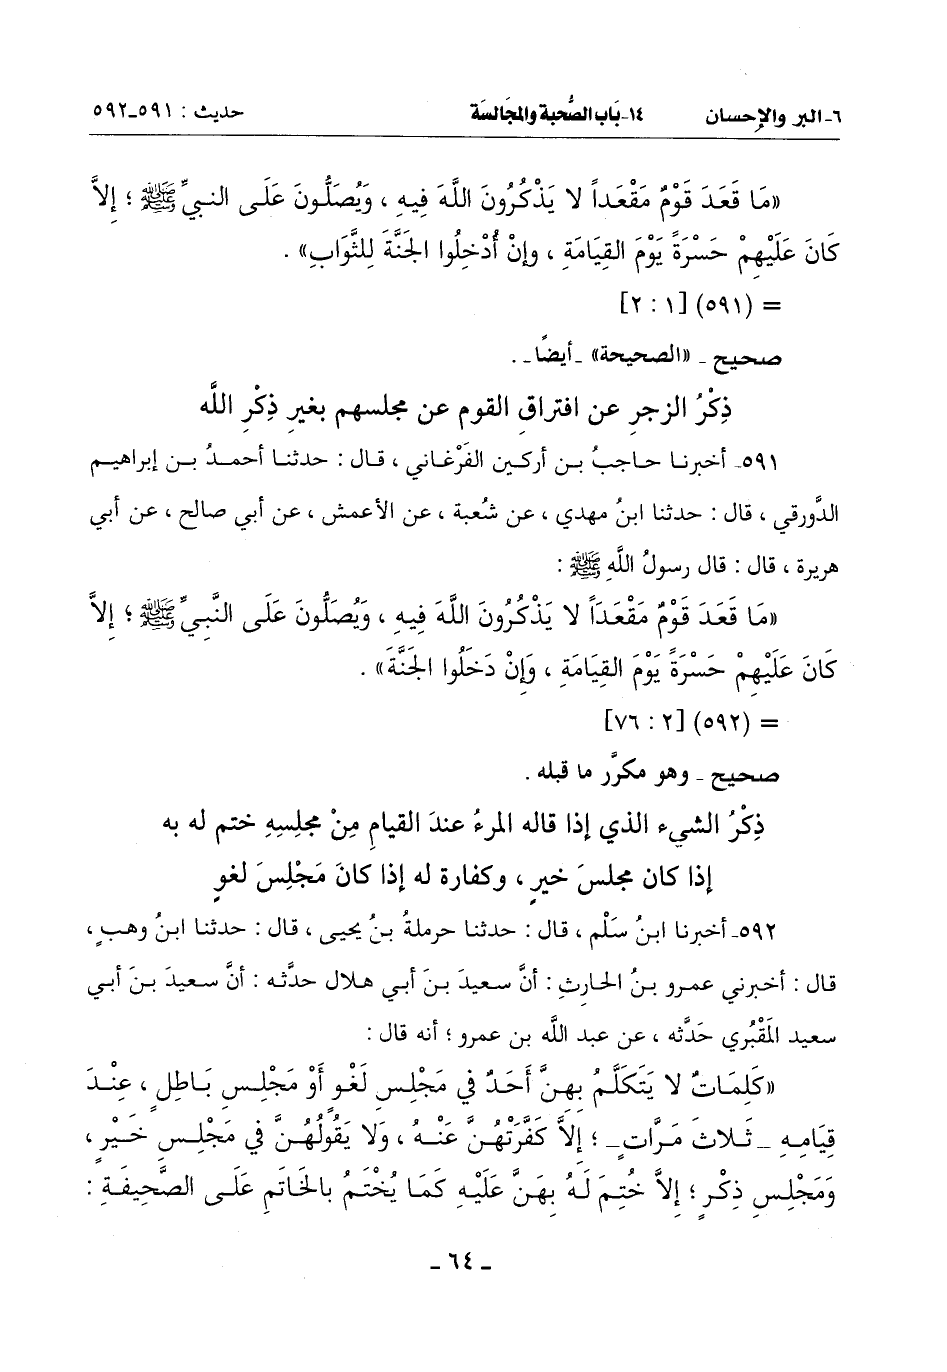 ٦- البر والإحسان ١٤- بَاب الصُّحبة والمجَالسَة حديث : ٥٩١-٥٩٢
«مَا قَعَدَ قَوْمٌ مَقْعَداً لا يَذْكُرُونَ اللَّهَ فِيهِ ، وَيُصَلُّونَ عَلَى النبيِّ ﷺ ؛ إِلاَّ
كَانَ عَلَيْهِمْ حَسْرَةً يَوْمَ القِيَامَةِ ، وإنْ أُدْخِلُوا الجَنَّةَ لِلثَّوَابِ» .
= (٥٩١) [١ : ٢]
صحيح ـ «الصحيحة» ـ أيضًا ـ .
ذِكْرُ الزجرِ عن افتراقِ القومِ عن مجلسهم بغيرِ ذِكْرِ اللَّه
٥٩١ـ أخبرنا حاجبُ بن أركين الفَرْغاني ، قال : حدثنا أحمدُ بن إبراهيم
الدَّورقي ، قال : حدثنا ابنُ مهدي ، عن شُعبة ، عن الأعمش ، عن أبي صالح ، عن أبي
هريرة ، قال : قال رسولُ اللَّهِ ﷺ :
«مَا قَعَدَ قَوْمٌ مَقْعَدَاً لا يَذْكُرُونَ اللَّهَ فِيهِ ، وَيُصَلُّونَ عَلَى النَّبِيِّ ﷺ ؛ إِلاَّ
كَانَ عَلَيْهِمْ حَسْرَةً يَوْمَ القِيَامَةِ ، وَإِنْ دَخَلُوا الجَنَّةَ» .
= (٥٩٢) [٢ : ٧٦]
صحيح ـ وهو مكرَّر ما قبله .
ذِكْرُ الشيء الذي إذا قاله المرءُ عندَ القيامِ مِنْ مجلِسِهِ ختم له به
إذا كان مجلسَ خيرٍ ، وكفارة له إذا كانَ مَجْلِسَ لغوٍ
٥٩٢ـ أخبرنا ابنُ سَلْم ، قال : حدثنا حرملةُ بنُ يحيى ، قال : حدثنا ابنُ وهبٍ ،
قال : أخبرني عمرو بنُ الحارثِ : أنَّ سعيدَ بنَ أبي هلال حدَّثه : أنَّ سعيدَ بنَ أبي
سعيد المَقْبُري حَدَّثه ، عن عبد اللَّه بن عمرو ؛ أنه قال :
«كَلِمَاتٌ لا يَتَكَلَّمُ بِهِنَّ أَحَدٌ فِي مَجْلِسِ لَغْوٍ أَوْ مَجْلِسِ بَاطِلٍ ، عِنْدَ
قِيَامِهِ ـ ثَلاثَ مَرَّاتٍ ـ ؛ إِلاَّ كَفَّرَتْهُنَّ عَنْهُ ، وَلا يَقُولُهُنَّ فِي مَجْلِسِ خَيْرٍ ،
وَمَجْلِسِ ذِكْرٍ ؛ إِلاَّ خُتِمَ لَهُ بِهَنَّ عَلَيْهِ كَمَا يُخْتَمُ بِالخَاتَمِ عَلَى الصَّحِيفَةِ :
ـ ٦٤ ـ